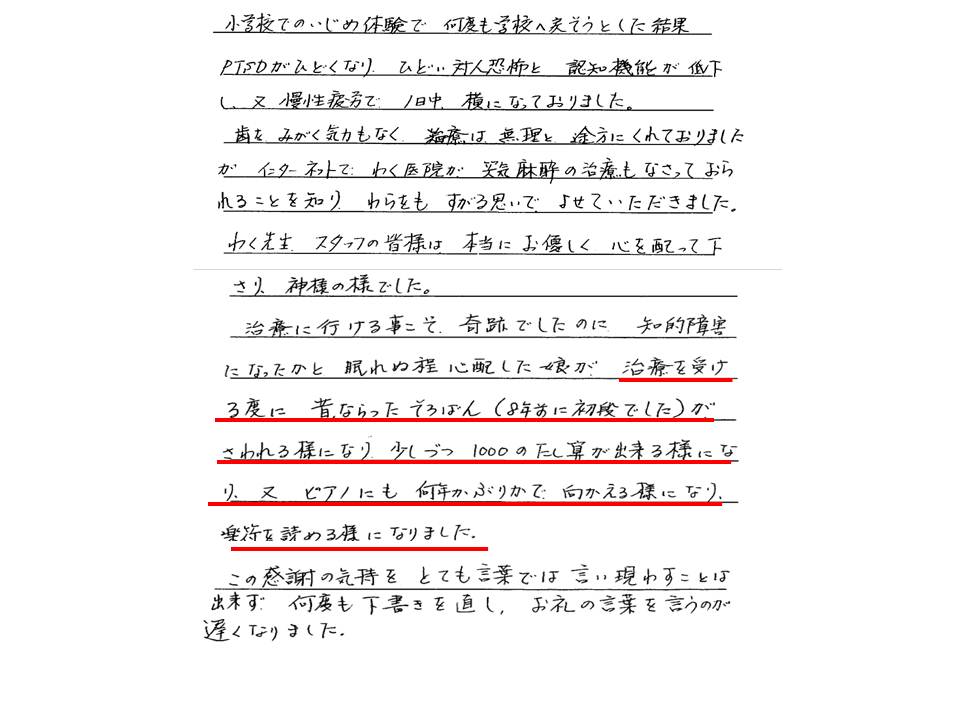 小学校でのいじめ体験で 何度も学校へ戻そうとした結果
PTSDがひどくなり、ひどい対人恐怖と 認知機能が低下
し、又 慢性疲労で 1日中、横になっておりました。
歯を みがく気力もなく、治療は 無理と 途方にくれておりました
が インターネットで、わく医院が 笑気麻酔の治療もなさっておら
れることを知り、わらをも すがる思いで よせていただきました。
わく先生、スタッフの皆様は、本当に お優しく 心を配って下
さり、神様の様でした。
治療に行ける事こそ、奇跡でしたのに、知的障害
になったかと 眠れぬ程 心配した娘が、治療を受け
る度に 昔、ならった そろばん (8年前に初段でした) が
さわれる様になり、少しづつ 1000のたし算が出来る様にな
り、又 ピアノにも 何年かぶりかで、向かえる様になり、
楽符を読める様になりました。
この感謝の気持を とても言葉では 言い現わすことは
出来ず、何度も下書きを直し、お礼の言葉を言うのが
遅くなりました。